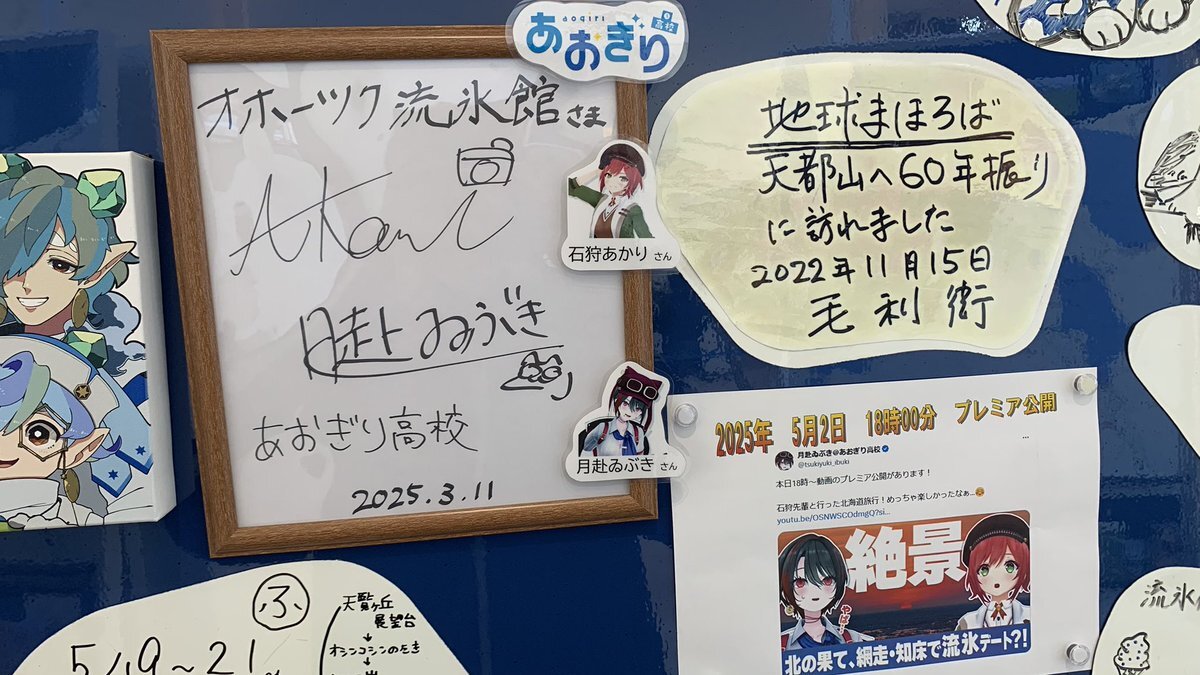 aogiri
あおぎり
高校
オホーツク 流氷館さま
石狩あかり さん
月赴ゐぶき
月赴ゐぶき さん
あおぎり高校
2025.3.11
地球まほろば
天都山へ60年振り
に訪れました
2022年11月15日
毛利 衛
2025年 5月2日 18時00分 プレミア公開
月赴ゐぶき@あおぎり高校
@tsukiyuki_ibuki
本日18時～動画のプレミア公開があります！
石狩先輩と行った北海道旅行！めっちゃ楽しかったなぁ…
youtu.be/OSNWSCOdmgQ?si...
絶景
やば…
北の果て、網走・知床で流氷デート?!
ふ
5/19～21
天覧ヶ丘
展望台
オシンコシンのたき
流氷